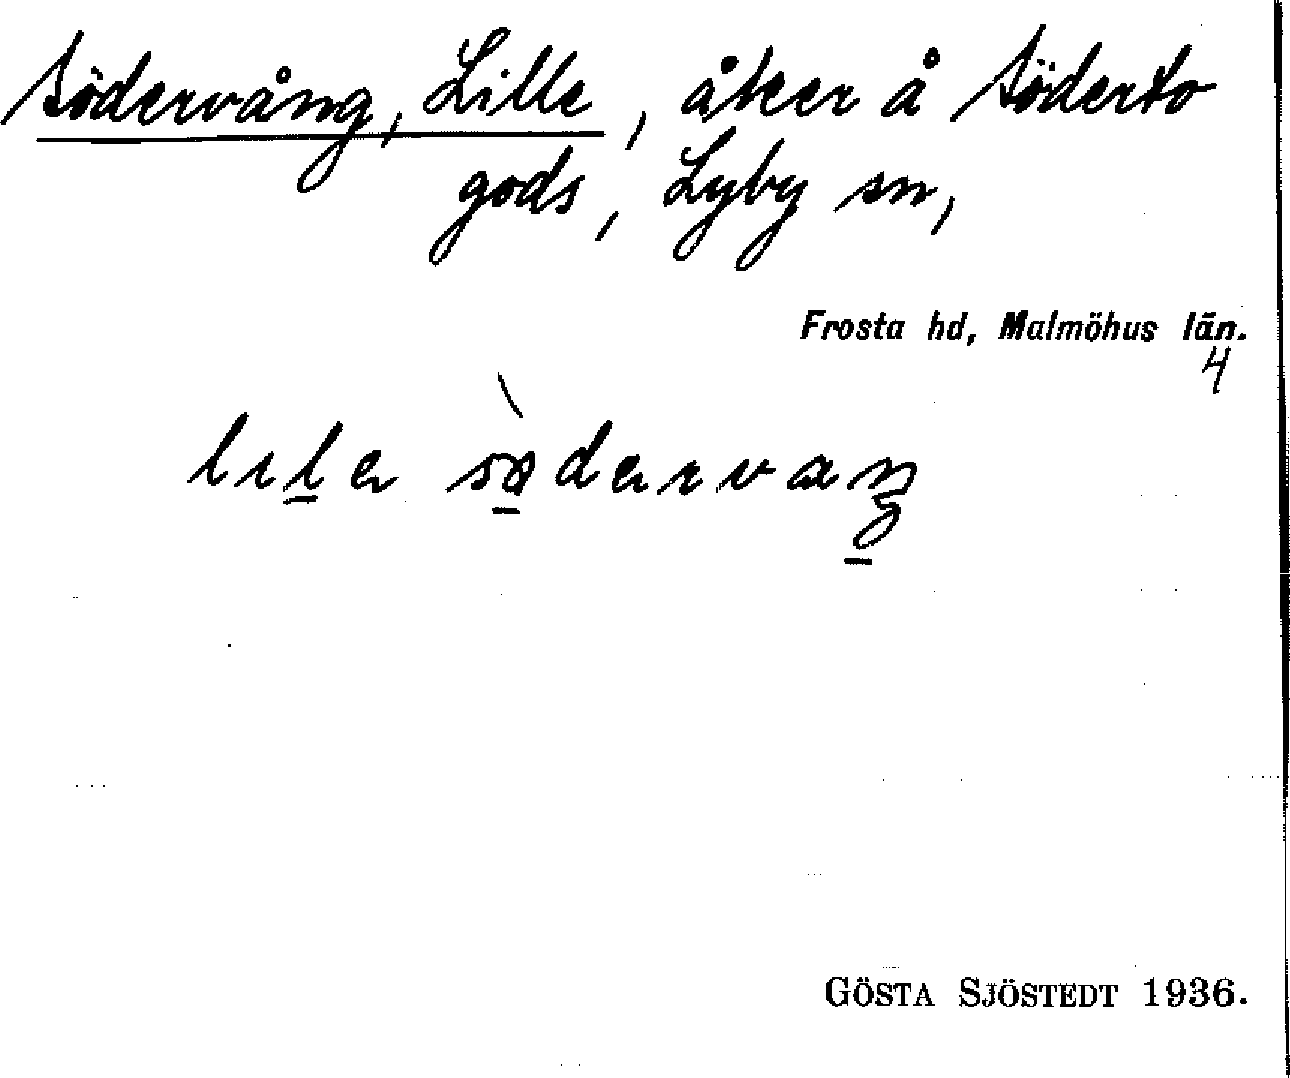 Södervång, Lille, åker å Söderto
gods, Lyby sn,
Frosta hd, Malmöhus län.
4
lıla södarvaŋ
GÖSTA SJÖSTEDT 1936.